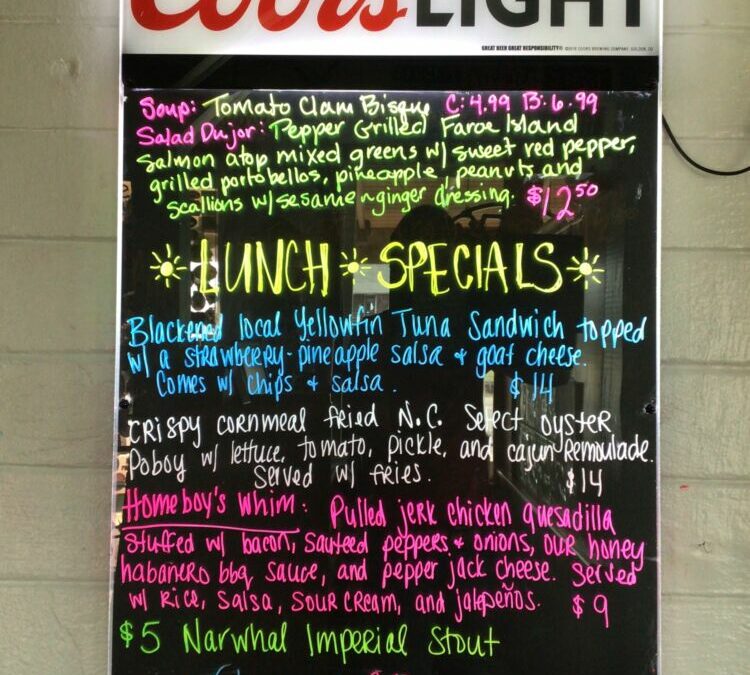 Coors LIGHT
GREAT BEER GREAT RESPONSIBILITY® ©2018 COORS BREWING COMPANY, GOLDEN, CO
Soup: Tomato Clam Bisque C: 4.99 B: 6.99
Salad Dujor: Pepper Grilled Faroe Island
Salmon atop mixed greens w/ sweet red pepper,
grilled portobellos, pineapple, peanuts and
scallions w/ sesame-ginger dressing. $12.50
LUNCH SPECIALS
Blackened local Yellowfin Tuna Sandwich topped
w/ a strawberry-pineapple salsa + goat cheese.
Comes w/ chips + salsa. $14
CRISPY cornmeal fried N.C. Select oyster
Poboy w/ lettuce, tomato, pickle, and cajun Remoulade.
Served w/ fries. $14
Homeboy's Whim: Pulled jerk chicken quesadilla
Stuffed w/ bacon, Sauteed peppers + onions, our honey
habanero bbq sauce, and pepper jack cheese. Served
w/ Rice, Salsa, Sour cream, and jalapeños. $9
$5 Narwhal Imperial Stout